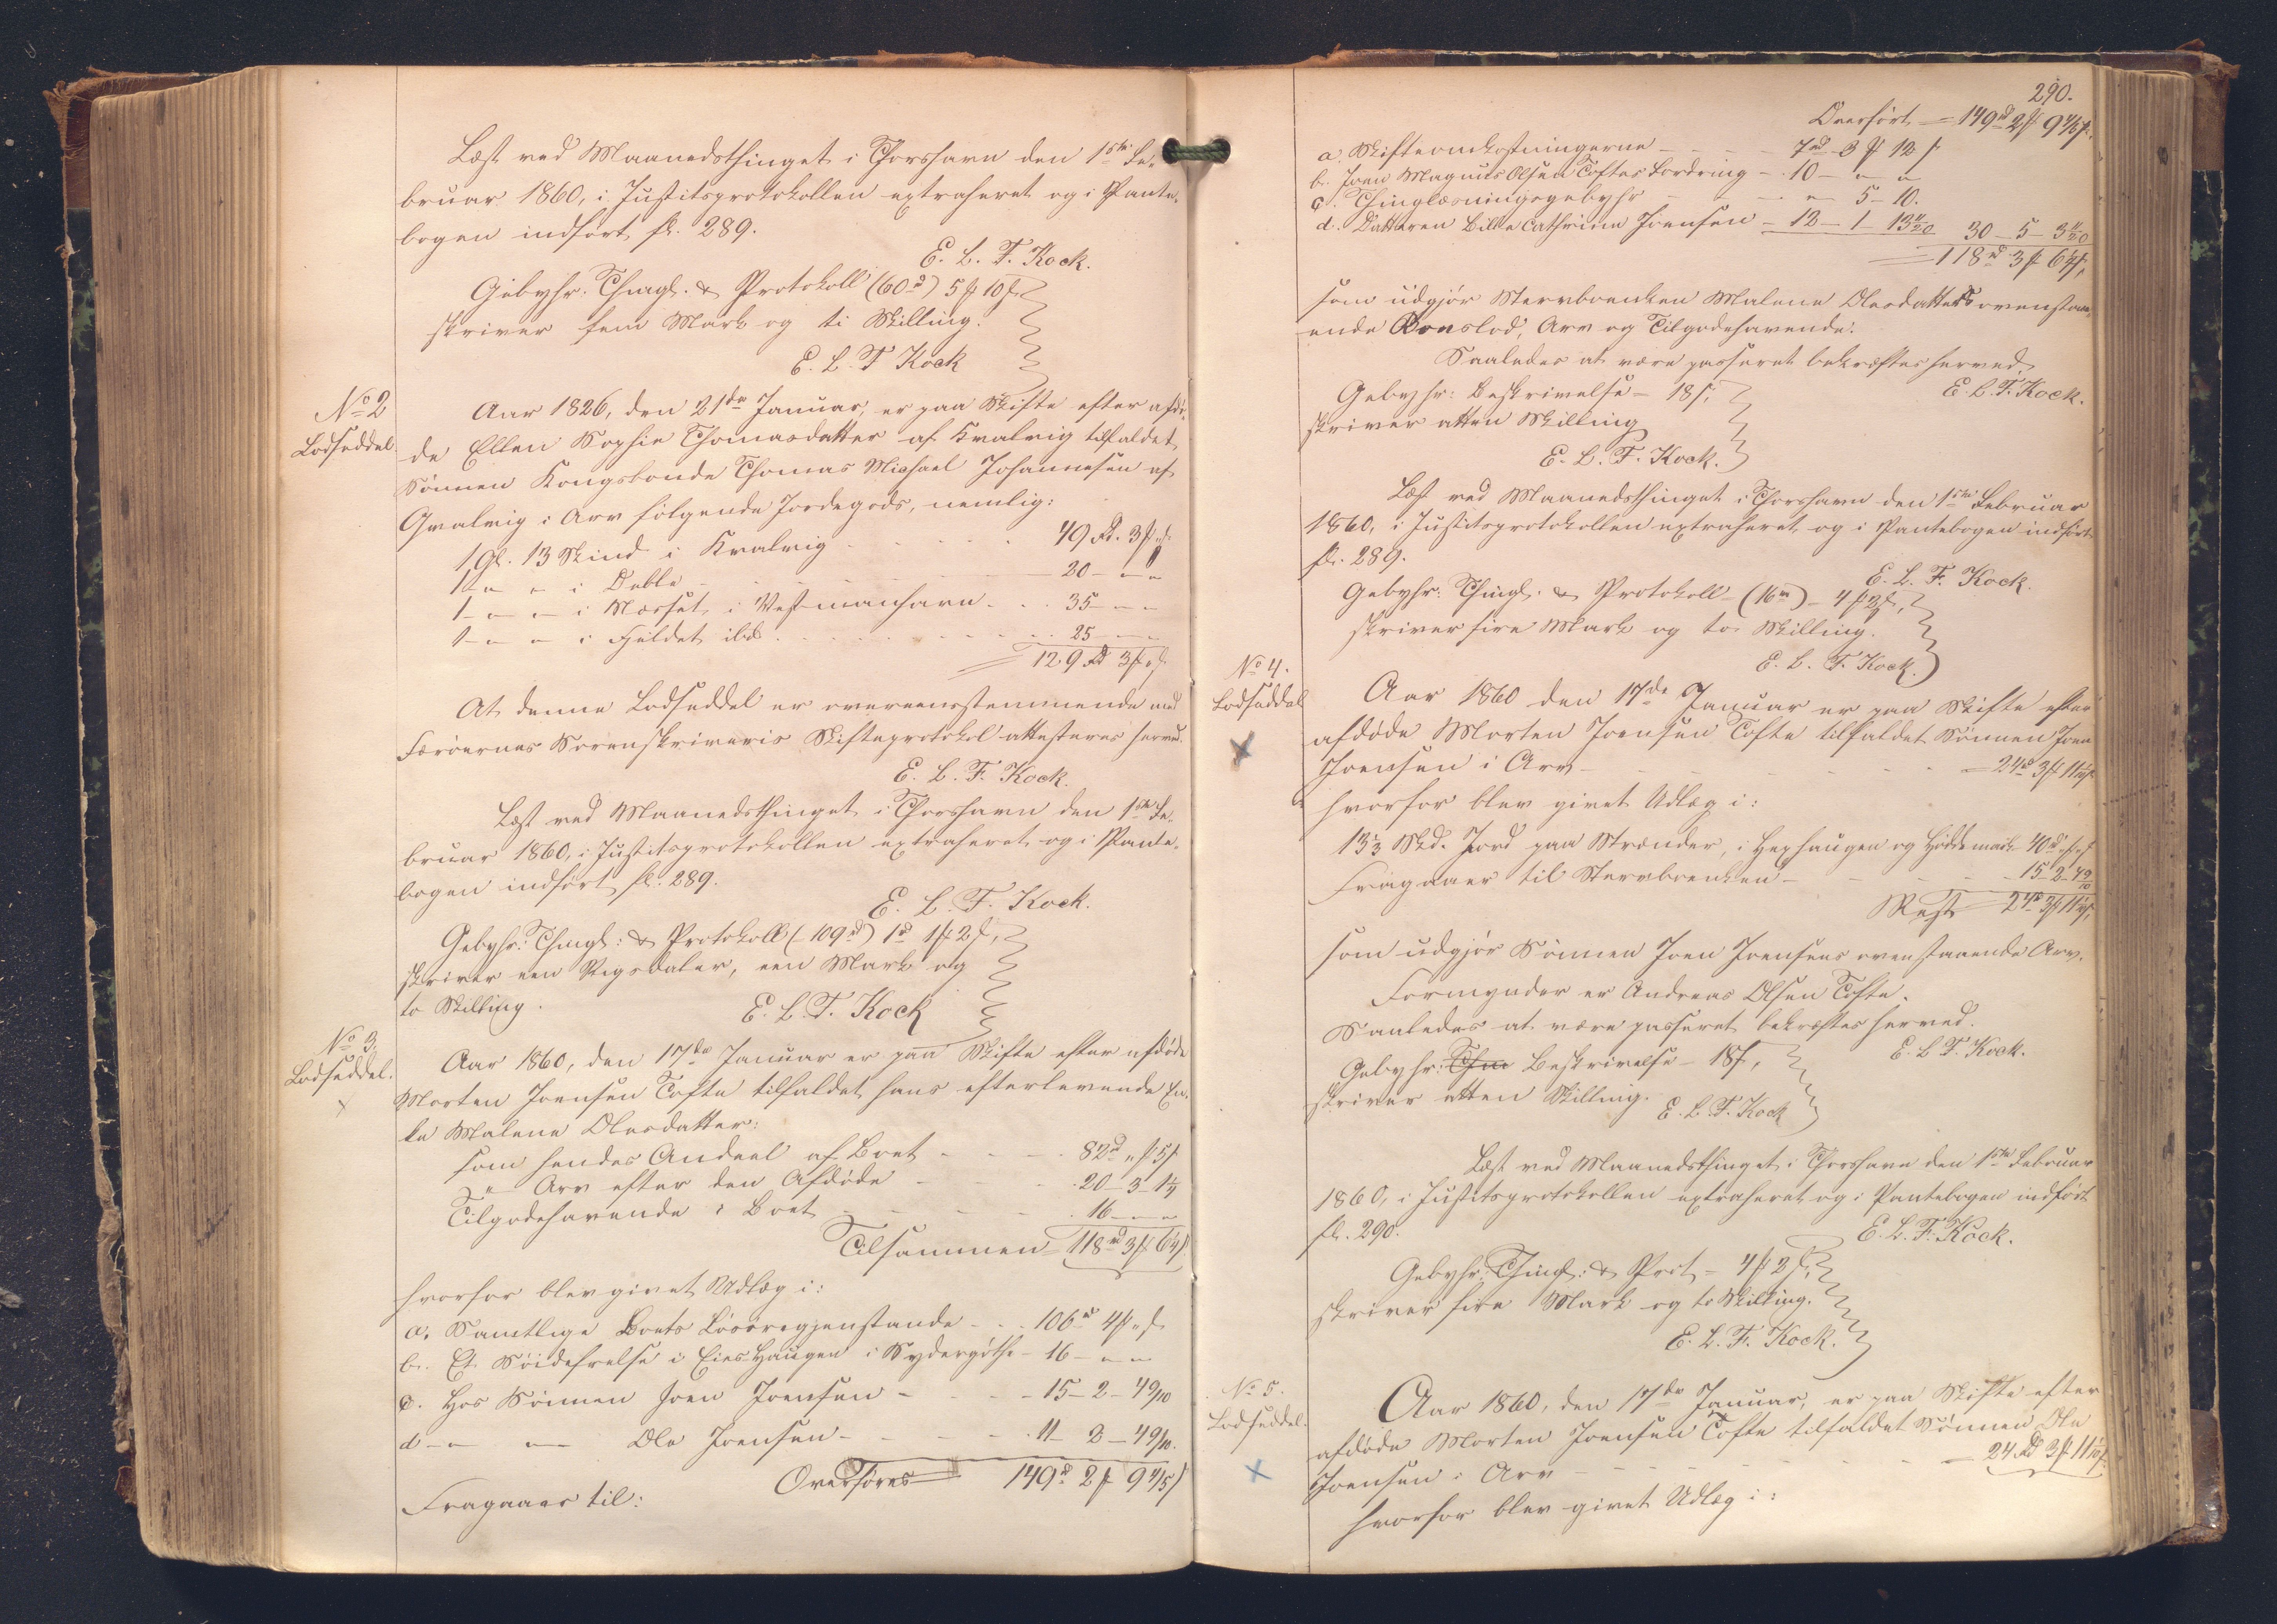 Læst ved Maanedsthinget i Thorshavn den 1ste Fe-
bruar 1860, i Justitsprotokollen extraheret og i Pante-
bogen indført fl. 289.
E. L. F. Kock.
Gebyhr. Thingl. & Protokoll (60rd) 5 ℳ 10 ß
skriver fem Mark og ti Skilling.
E. L. F Kock
No 2
Lodseddel.
Aar 1826, den 21de Januar, er paa Skifte efter afdø-
de Ellen Sophie Thomasdatter af Kvalvig tilfaldet
Sønnen Kongsbonde Thomas Michael Johannesen af
Qvalvig i Arv følgende Jordegods, nemlig:
1 Gl. 13 Skind i Kvalvig - - - - 49 Rd. 3 ℳ " ß
1 " " i - - - 20 - " "
1 - " - " i Næsset i Vestmanhavn - - - 35 - " -
1 - " - " i ibd. - - - 25 - " -
= 129 Rd 3 ℳ " ß
At denne Lodseddel er overeensstemmende med
Færøernes Sorenskriveris Skifteprotokol attesteres herved.
E. L. F. Kock.
Læst ved Maanedsthinget i Thorshavn den 1ste Fe-
bruar 1860, i Justitsprotokollen extraheret og i Pante-
bogen indført fl. 289.
E. L. F. Kock.
Gebyhr: Thingl: & Protokoll (109rd) 1rd 1 ℳ 2 ß,
skriver een Rigsdaler, een Mark og
to Skilling.
E. L. F. Kock
No 3.
Lodseddel.
Aar 1860, den 17de Januar er paa Skifte efter afdøde
Morten Joensen Tofte tilfaldet hans efterlevende En-
ke Malene Olesdatter:
som hendes Andeel af Boet - - - - 82rd " ℳ 5 ß
" Arv efter den Afdøde - - - 20 - 3 - 1½
Tilgodehavende i Boet - - - - 16 - " -
Tilsammen = 118rd 3 ℳ 6½ ß
hvorfor blev givet Udlæg i:
a. Samtlige Boets Løsøregjenstande - - - 106rd 4 ℳ " ß
b. Et i Eies Haugen i Sydergøthe - 16 - " -
c. Hos Sønnen Joen Joensen - - - - 15 - 2 - 4 9/10
d - " - Ole Joensen - - - - 11 - 2 - 4 9/10.
Overføres = 149rd 2 ℳ 9 4/5 ß
Fragaaer til:
290.
Overført = 149rd 2 ℳ 9 4/5 ß.
a. Skifteomkostningerne - - - - 7rd 3 ℳ 12 ß
b. Joen Magnus Olsen Toftes Fordring - 10 - " "
c. Thinglæsningsgebyhr - - - " 5 - 10.
d. Datteren Bille Cathrine Joensen - 12 - 1 - 13 6/20 30 - 5 - 3 6/20
= 118rd 3 ℳ 6½ ß,
som udgjør Stervboenken Malene Olesdatters ovenstaa-
ende Boeslod, Arv og Tilgodehavende.
Saaledes at være passeret bekræftes herved.
E. L. F. Kock.
Gebyhr: Beskrivelse - 18 ß,
skriver atten Skilling
E. L. F. Kock.
Læst ved Maanedsthinget i Thorshavn den 1ste Februar
1860, i Justitsprotokollen extraheret og i Pantebogen indført
fl. 289.
E. L. F. Kock.
Gebyhr: Thingl. & Protokoll - (16rd) - 4 ℳ 2 ß,
skriver fire Mark og to Skilling.
E. L. F. Kock.
No 4.
Lodseddel
Aar 1860 den 17de Januar er paa Skifte efter
afdøde Morten Joensen Tofte tilfaldet Sønnen Joen
Joensen i Arv - - - - = 24rd 3 ℳ 11 1/10 ß
hvorfor blev givet Udlæg i:
13⅓ Skd. Jord paa Strænder, i og 40rd " ß
Fragaaer til Stervboenken - - - - 15 - 2 - 4 9/10
Rest 24rd 3 ℳ 11 1/10 ß,
som udgjør Sønnen Joen Joensens ovenstaaende Arv.
Formynder er Andreas Olsen Tofte.
Saaledes at være passeret bekræftes herved.
E. L. F. Kock.
Gebyhr: Beskrivelse - 18 ß,
skriver atten Skilling.
E. L. F. Kock
Læst ved Maanedsthinget i Thorshavn den 1ste Februar
1860, i Justitsprotokollen extraheret og i Pantebogen indført
fl. 290.
E. L. F. Kock.
Gebyhr: Thingl: & Prot - 4 ℳ 2 ß,
skriver fire Mark og to Skilling.
E. L. F. Kock.
No 5.
Lodseddel.
Aar 1860, den 17de Januar, er paa Skifte efter
afdøde Morten Joensen Tofte tilfaldet Sønnen Ole
Joensen i Arv - - - - = 24 Rd 3 ℳ 11 1/10 ß.
hvorfor blev givet Udlæg i: